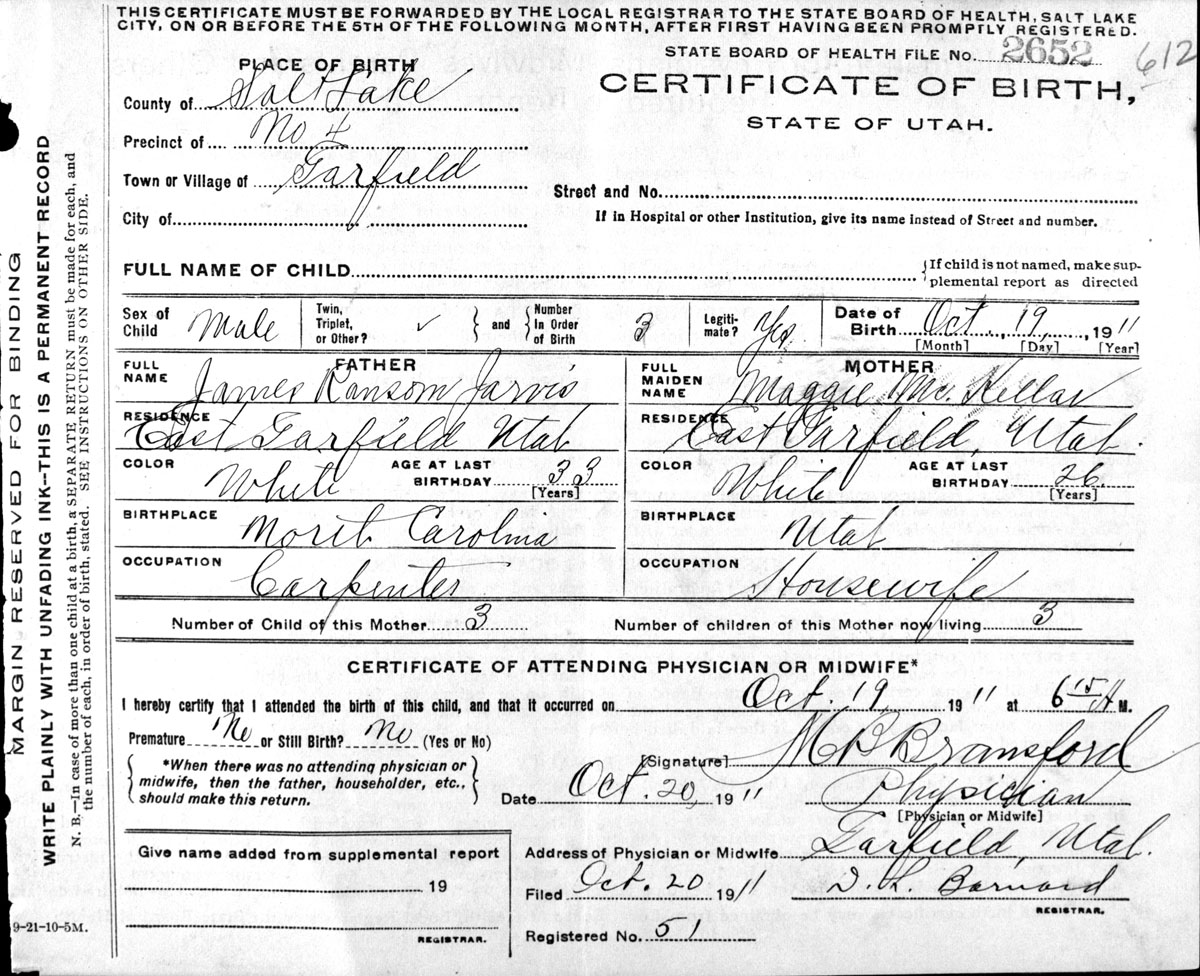 THIS CERTIFICATE MUST BE FORWARDED BY THE LOCAL REGISTRAR TO THE STATE BOARD OF HEALTH, SALT LAKE
CITY, ON OR BEFORE THE 5TH OF THE FOLLOWING MONTH, AFTER FIRST HAVING BEEN PROMPTLY REGISTERED.
STATE BOARD OF HEALTH FILE No. 2652 612
PLACE OF BIRTH
CERTIFICATE OF BIRTH,
STATE OF UTAH.
County of Salt Lake
Precinct of No 4
Town or Village of Garfield
Street and No.
City of
If in Hospital or other Institution, give its name instead of Street and number.
FULL NAME OF CHILD
{If child is not named, make sup-
plemental report as directed
Sex of Child Male
Twin, Triplet, or Other? ✓ } and { Number In Order of Birth 3
Legiti-mate? Yes
Date of Birth Oct., 19, 1911
[Month] [Day] [Year]
FATHER
FULL NAME James Ransom Jarvis
RESIDENCE East Garfield Utah
COLOR White AGE AT LAST BIRTHDAY 33 [Years]
BIRTHPLACE North Carolina
OCCUPATION Carpenter
MOTHER
FULL MAIDEN NAME Maggie McKellar
RESIDENCE East Garfield, Utah.
COLOR White AGE AT LAST BIRTHDAY 26 [Years]
BIRTHPLACE Utah
OCCUPATION Housewife
Number of Child of this Mother 3 Number of children of this Mother now living 3
CERTIFICATE OF ATTENDING PHYSICIAN OR MIDWIFE*
I hereby certify that I attended the birth of this child, and that it occurred on Oct. 19 1911 at 6 15 A M.
Premature No or Still Birth? No (Yes or No)
{ *When there was no attending physician or
midwife, then the father, householder, etc.,
should make this return. }
[Signature] M B Bransford
Date Oct 20, 1911 Physician
[Physician or Midwife]
Address of Physician or Midwife Garfield, Utah.
Filed Oct. 20 1911 D. L. Barnard
REGISTRAR.
Registered No. 51
Give name added from supplemental report
19
REGISTRAR.
9-21-10-5M.
MARGIN RESERVED FOR BINDING
WRITE PLAINLY WITH UNFADING INK--THIS IS A PERMANENT RECORD
N. B.--In case of more than one child at a birth, a SEPARATE RETURN must be made for each, and
the number of each, in order of birth, stated. SEE INSTRUCTIONS ON OTHER SIDE.